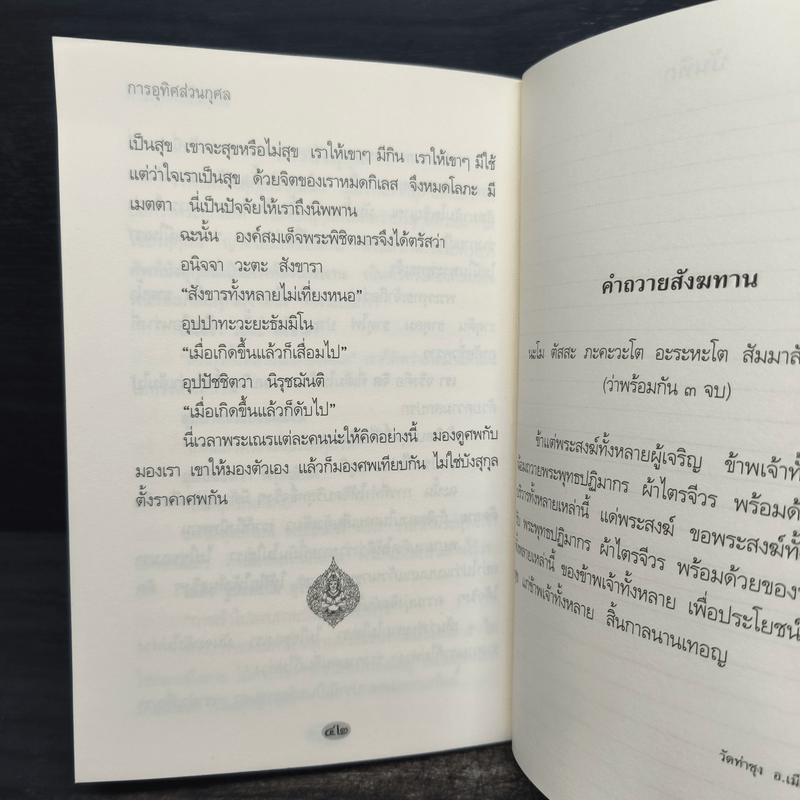 การอุทิศส่วนกุศล
เป็นสุข เขาจะสุขหรือไม่สุข เราให้เขาๆ มีกิน เราให้เขาๆ มีใช้
แต่ว่าใจเราเป็นสุข ด้วยจิตของเราหมดกิเลส จึงหมดโลภะ มี
เมตตา นี่เป็นปัจจัยให้เราถึงนิพพาน
ฉะนั้น องค์สมเด็จพระพิชิตมารจึงได้ตรัสว่า
อนิจจา วะตะ สังขารา
“สังขารทั้งหลายไม่เที่ยงหนอ”
อุปปาทะวะยะธัมมิโน
“เมื่อเกิดขึ้นแล้วก็เสื่อมไป”
อุปปัชชิตวา นิรุชฌันติ
“เมื่อเกิดขึ้นแล้วก็ดับไป”
นี่เวลาพระเณรแต่ละคนน่ะให้คิดอย่างนี้ มองดูศพกับ
มองเรา เขาให้มองตัวเอง แล้วก็มองศพเทียบกัน ไม่ใช่บังสุกุล
ตั้งราคาศพกัน
๔๒
คำถวายสังฆทาน
นะโม ตัสสะ ภะคะวะโต อะระหะโต สัมมาสั
(ว่าพร้อมกัน ๓ จบ)
ข้าแต่พระสงฆ์ทั้งหลายผู้เจริญ ข้าพเจ้าทั้
น้อมถวายพระพุทธปฏิมากร ผ้าไตรจีวร พร้อมด้
บริวารทั้งหลายเหล่านี้ แด่พระสงฆ์ ขอพระสงฆ์ทั้
พระพุทธปฏิมากร ผ้าไตรจีวร พร้อมด้วยของ
ทั้งหลายเหล่านี้ ของข้าพเจ้าทั้งหลาย เพื่อประโยชน์
แก่ข้าพเจ้าทั้งหลาย สิ้นกาลนานเทอญ
วัดท่าซุง อ.เมื